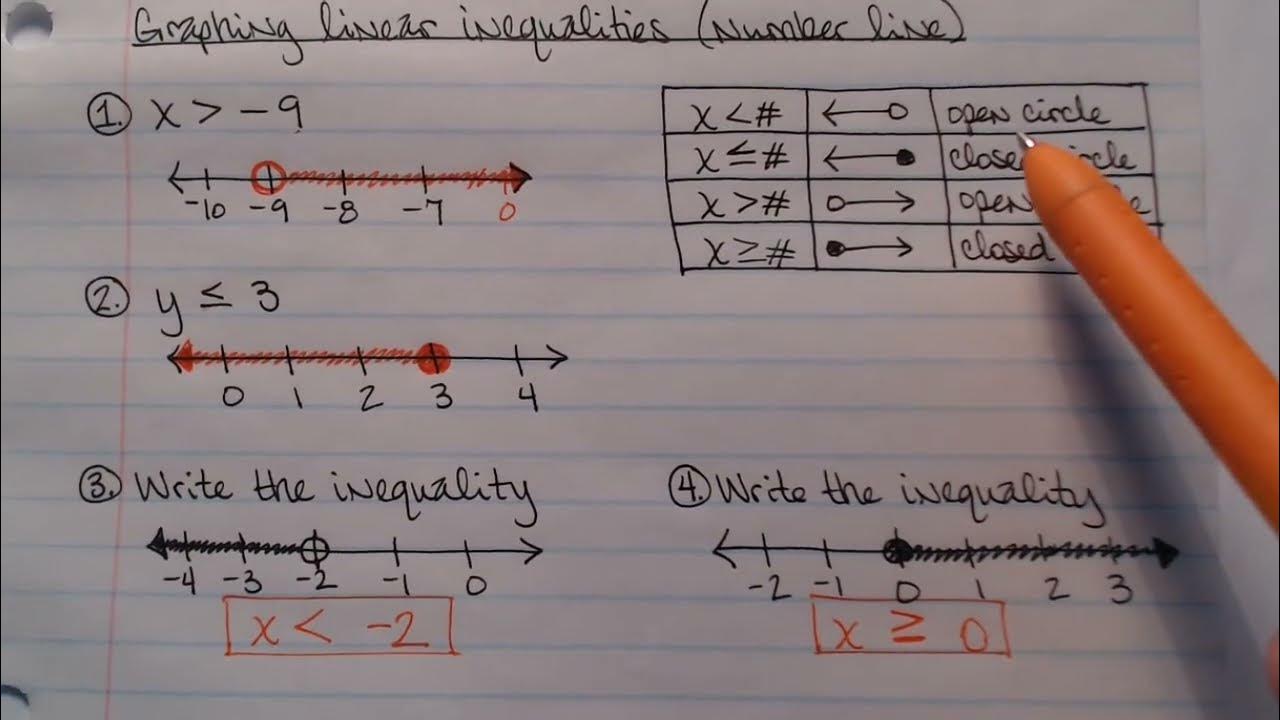 Graphing linear inequalities (Number line)
1. x > -9
-10 -9 -8 -7 0
x < # open circle
x ≤ # closed circle
x > # open
x ≥ # closed
2. y ≤ 3
0 1 2 3 4
3. Write the inequality
-4 -3 -2 -1 0
x < -2
4. Write the inequality
-2 -1 0 1 2 3
x ≥ 0